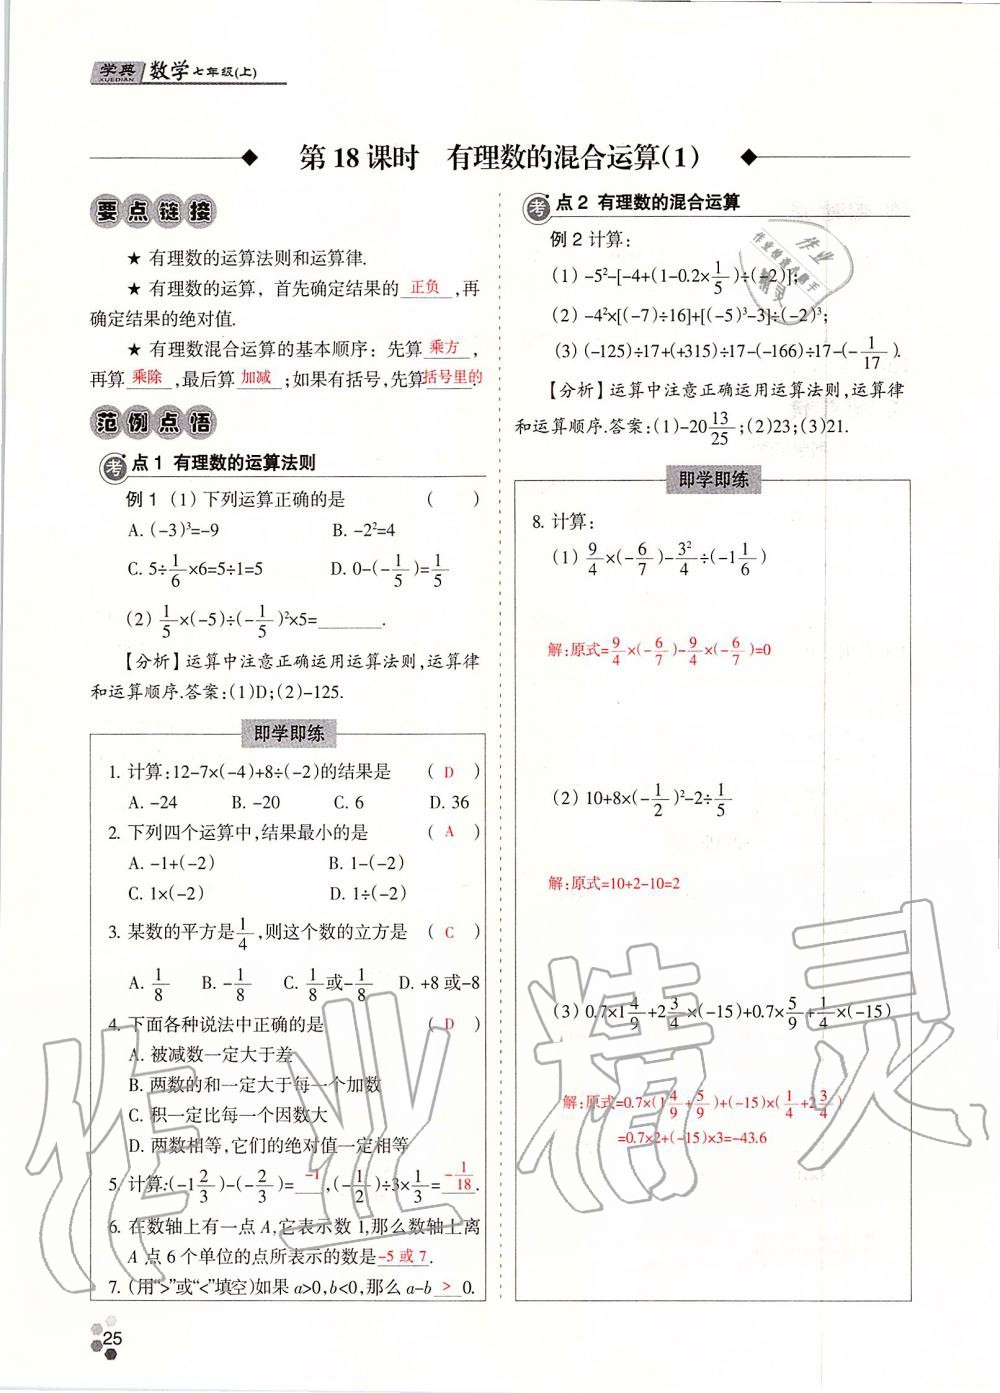 学典 数学七年级(上)
XUEDIAN
第 18 课时　有理数的混合运算(1)
要点链接
★ 有理数的运算法则和运算律.
★ 有理数的运算，首先确定结果的 正负 ,再
确定结果的绝对值.
★ 有理数混合运算的基本顺序：先算 乘方 ,
再算 乘除 ,最后算 加减 ;如果有括号,先算 括号里的 .
范例点悟
考点 1 有理数的运算法则
例 1 (1) 下列运算正确的是 (　　)
A. (-3)³=-9　B. -2²=4
C. 5÷1/6×6=5÷1=5　D. 0-(-1/5)=1/5
(2) 1/5×(-5)÷(-1/5)²×5=______.
【分析】运算中注意正确运用运算法则,运算律
和运算顺序.答案:(1)D;(2)-125.
即学即练
1. 计算:12-7×(-4)+8÷(-2)的结果是 ( D )
A. -24　B. -20　C. 6　D. 36
2. 下列四个运算中,结果最小的是 ( A )
A. -1+(-2)　B. 1-(-2)
C. 1×(-2)　D. 1÷(-2)
3. 某数的平方是1/4,则这个数的立方是 ( C )
A. 1/8　B. -1/8　C. 1/8或-1/8　D. +8 或-8
4. 下面各种说法中正确的是 ( D )
A. 被减数一定大于差
B. 两数的和一定大于每一个加数
C. 积一定比每一个因数大
D. 两数相等,它们的绝对值一定相等
5. 计算:(-1 2/3)-(-2/3)= -1 ,(-1/2)÷3×1/3= -1/18 .
6. 在数轴上有一点 A,它表示数 1,那么数轴上离
A 点 6 个单位的点所表示的数是 -5 或 7 .
7. (用“>”或“<”填空)如果 a>0,b<0,那么 a-b > 0.
25
考点 2 有理数的混合运算
例 2 计算：
(1) -5²-[-4+(1-0.2×1/5)÷(-2)];
(2) -4²×[(-7)÷16]+[(-5)³-3]÷(-2)³;
(3) (-125)÷17+(+315)÷17-(-166)÷17-(-1/17).
【分析】运算中注意正确运用运算法则,运算律
和运算顺序.答案:(1)-20 13/25;(2)23;(3)21.
即学即练
8. 计算：
(1) 9/4×(-6/7)-3²/4÷(-1 1/6)
解:原式=9/4×(-6/7)-9/4×(-6/7)=0
(2) 10+8×(-1/2)²-2÷1/5
解:原式=10+2-10=2
(3) 0.7×1 4/9+2 3/4×(-15)+0.7×5/9+1/4×(-15)
解:原式=0.7×(1 4/9+5/9)+(-15)×(1/4+2 3/4)
=0.7×2+(-15)×3=-43.6
作业精灵